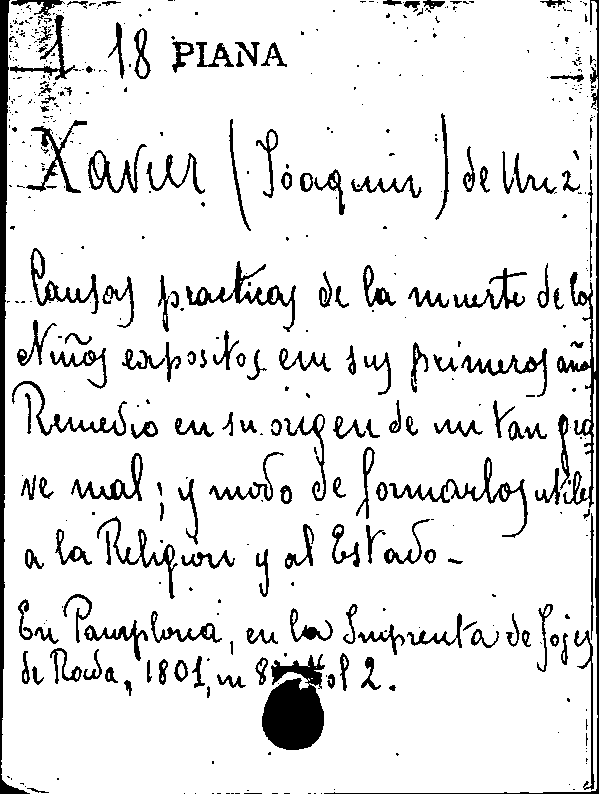 1. 18 PIANA
Xavier (Joaquin) de Uriz
Causas practicas de la muerte de los
Niños expositos em sus primeros años
Remedio en su origen de un tan gra
ve mal; y modo de formarlos utiles
a la Religion y al Estado_
En Pamplona, en la Imprenta de Josef
de Rada, 1801, in 8 Vol 2.